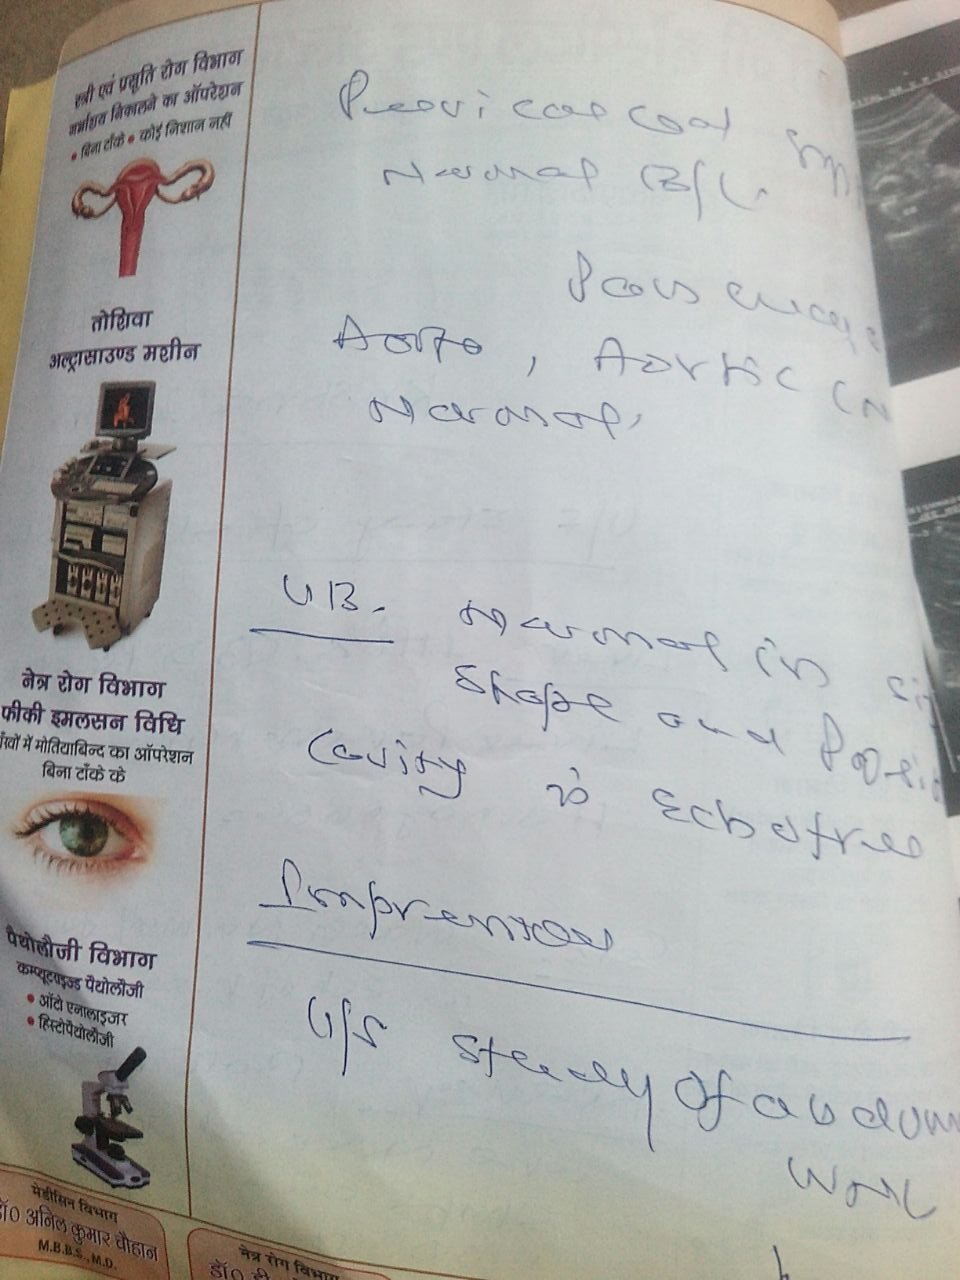 स्त्री एवं प्रसूति रोग विभाग
गर्भाशय निकालने का ऑपरेशन
• बिना टाँके • कोई निशान नहीं
तोशिवा
अल्ट्रासाउण्ड मशीन
नेत्र रोग विभाग
फीकी इमलसन विधि
आँखों में मोतियाबिन्द का ऑपरेशन
बिना टाँके के
पैथोलौजी विभाग
कम्प्यूटराइज्ड पैथोलौजी
• ऑटो एनालाइजर
• हिस्टोपैथोलौजी
मेडीसिन विभाग
डॉ० अनिल कुमार चौहान
M.B.B.S., M.D.
नेत्र रोग विभाग
डॉ०
Normal B/L.
Aorta, Aortic
Normal,
UB. Normal in
Shape and
Cavity is Echofree
Impression
U/S Study of
WNL